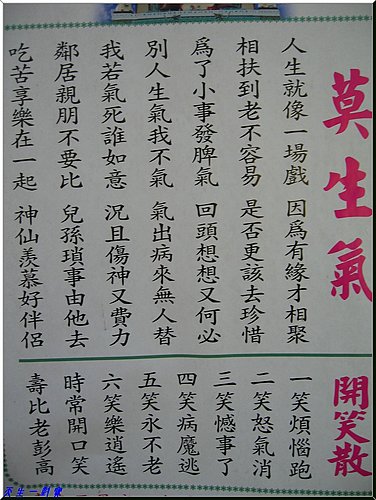 莫生氣
人生就像一場戲 因爲有緣才相聚
相扶到老不容易 是否更該去珍惜
爲了小事發脾氣 回頭想想又何必
別人生氣我不氣 氣出病來無人替
我若氣死誰如意 況且傷神又費力
鄰居親朋不要比 兒孫瑣事由他去
吃苦享樂在一起 神仙羨慕好伴侶
開笑散
一笑煩惱跑
二笑怒氣消
三笑憾事了
四笑病魔逃
五笑永不老
六笑樂逍遙
時常開口笑
壽比老彭高